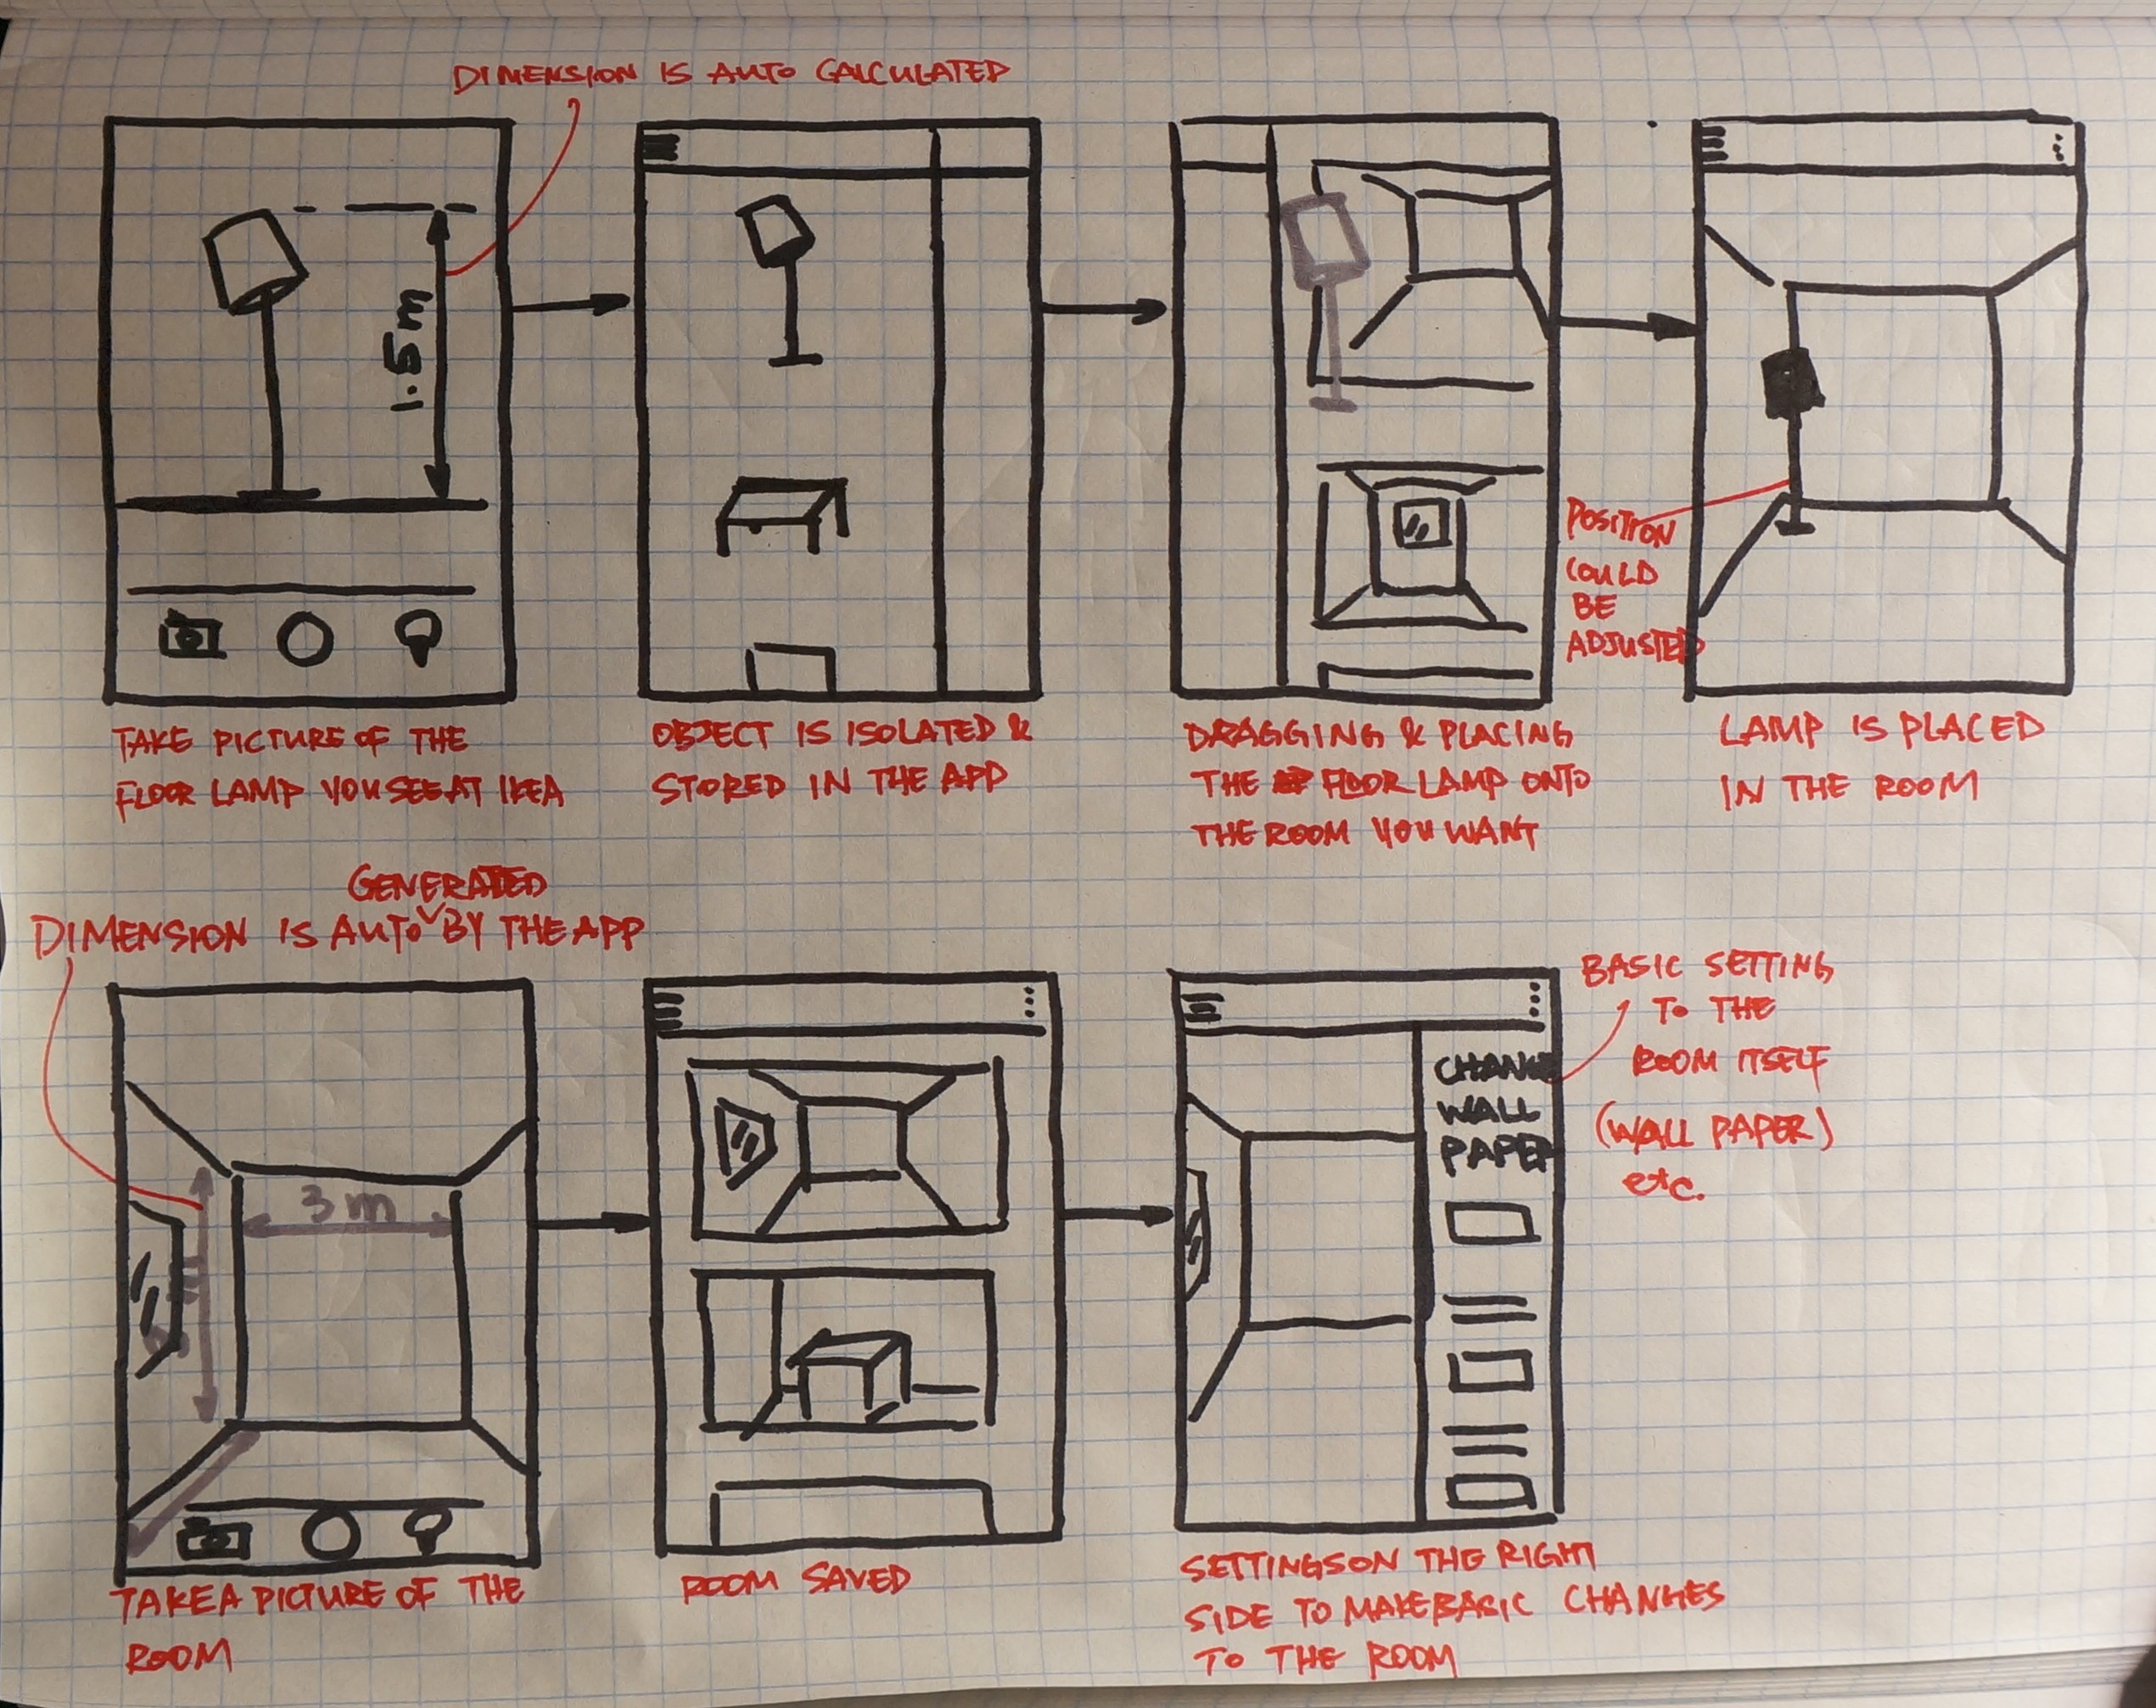 DIMENSION IS AUTO CALCULATED
1.5m
TAKE PICTURE OF THE
FLOOR LAMP YOU SEE AT IKEA
OBJECT IS ISOLATED &
STORED IN THE APP
DRAGGING & PLACING
THE FLOOR LAMP ONTO
THE ROOM YOU WANT
POSITION
COULD
BE
ADJUSTED
LAMP IS PLACED
IN THE ROOM
GENERATED
DIMENSION IS AUTO BY THE APP
3m
TAKE A PICTURE OF THE
ROOM
ROOM SAVED
CHANGE
WALL
PAPER
BASIC SETTING
TO THE
ROOM ITSELF
(WALL PAPER)
etc.
SETTINGS ON THE RIGHT
SIDE TO MAKE BASIC CHANGES
TO THE ROOM